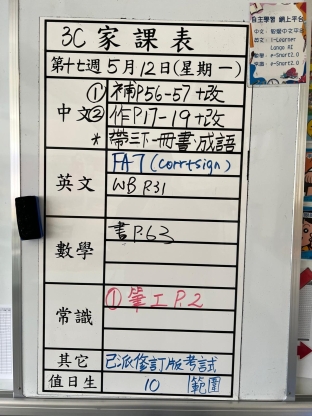 3C 家課表
第十七週 5月12日(星期一)
中文
① 補P.56-57+改
② 作P.17-19+改
* 帶三下一冊書、成語
英文
FA7 (corr+sign)
WB P.31
數學
書P.63
常識
① 筆工 P.2
其它 已派修訂版考試
範圍
值日生 10
自主學習 網上平台
中文:智愛中文平台
英文:i-Learner
Lango AI
e-Smart2.0
e-Smart2.0